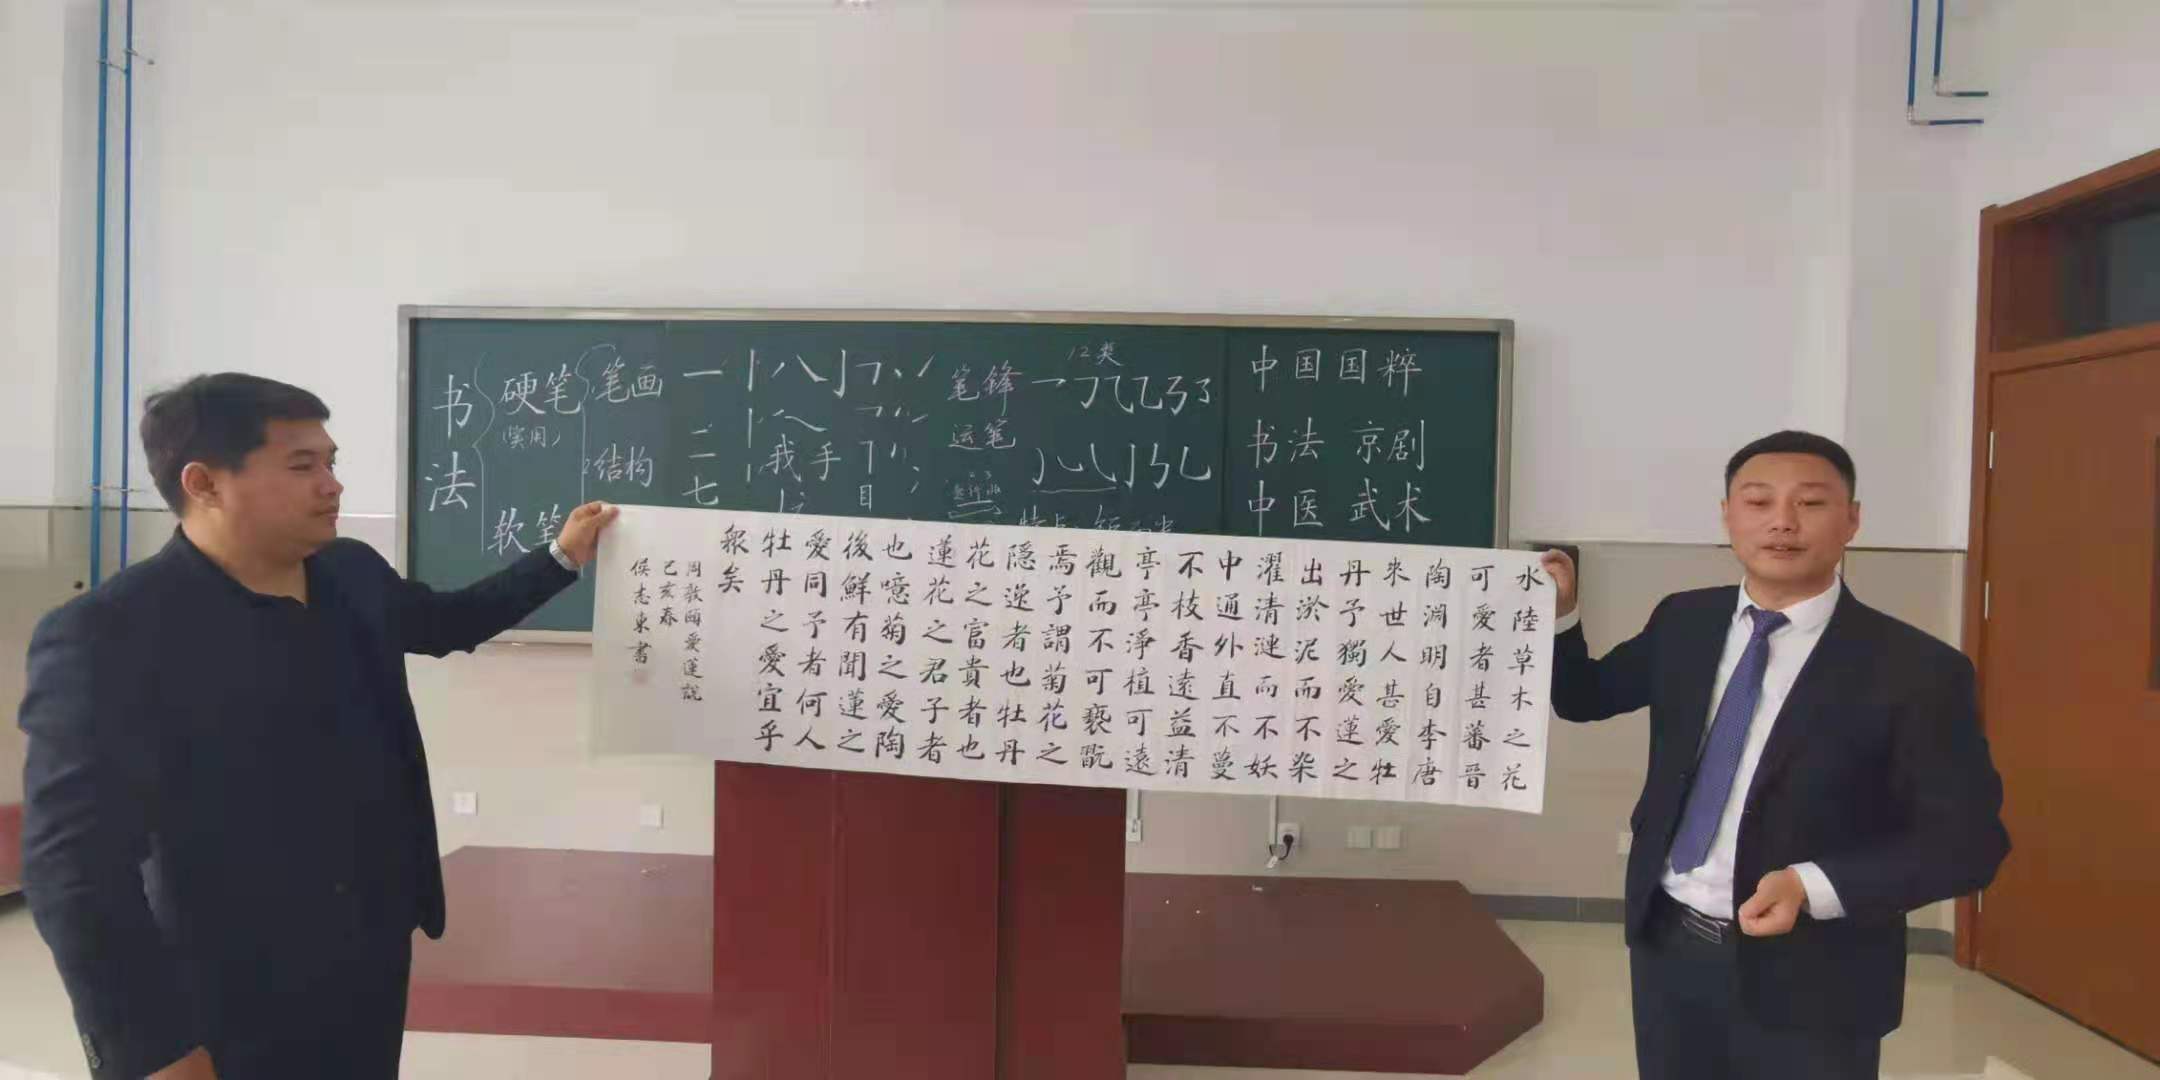 书法
硬笔
(实用)
软笔
笔画
结构
一
二
七
我 手
目
笔锋
运笔
12类
中国国粹
书法 京剧
中医 武术
水陸草木之花
可愛者甚蕃晉
陶淵明自李唐
来世人甚愛牡
丹予獨愛蓮之
出淤泥而不染
濯清漣而不妖
中通外直不蔓
不枝香遠益清
亭亭淨植可遠
觀而不可褻翫
焉予謂菊花之
隱逸者也牡丹
花之富貴者也
蓮花之君子者
也噫菊之愛陶
後鮮有聞蓮之
愛同予者何人
牡丹之愛宜乎
眾矣
周敦頤愛蓮說
己亥春
侯志東書